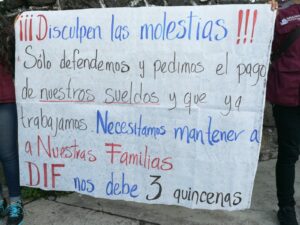 ¡¡¡Disculpen las molestias!!!
Sólo defendemos y pedimos el pago
de nuestros sueldos y que ya
trabajamos. Necesitamos mantener a
a Nuestras Familias
DIF nos debe 3 quincenas